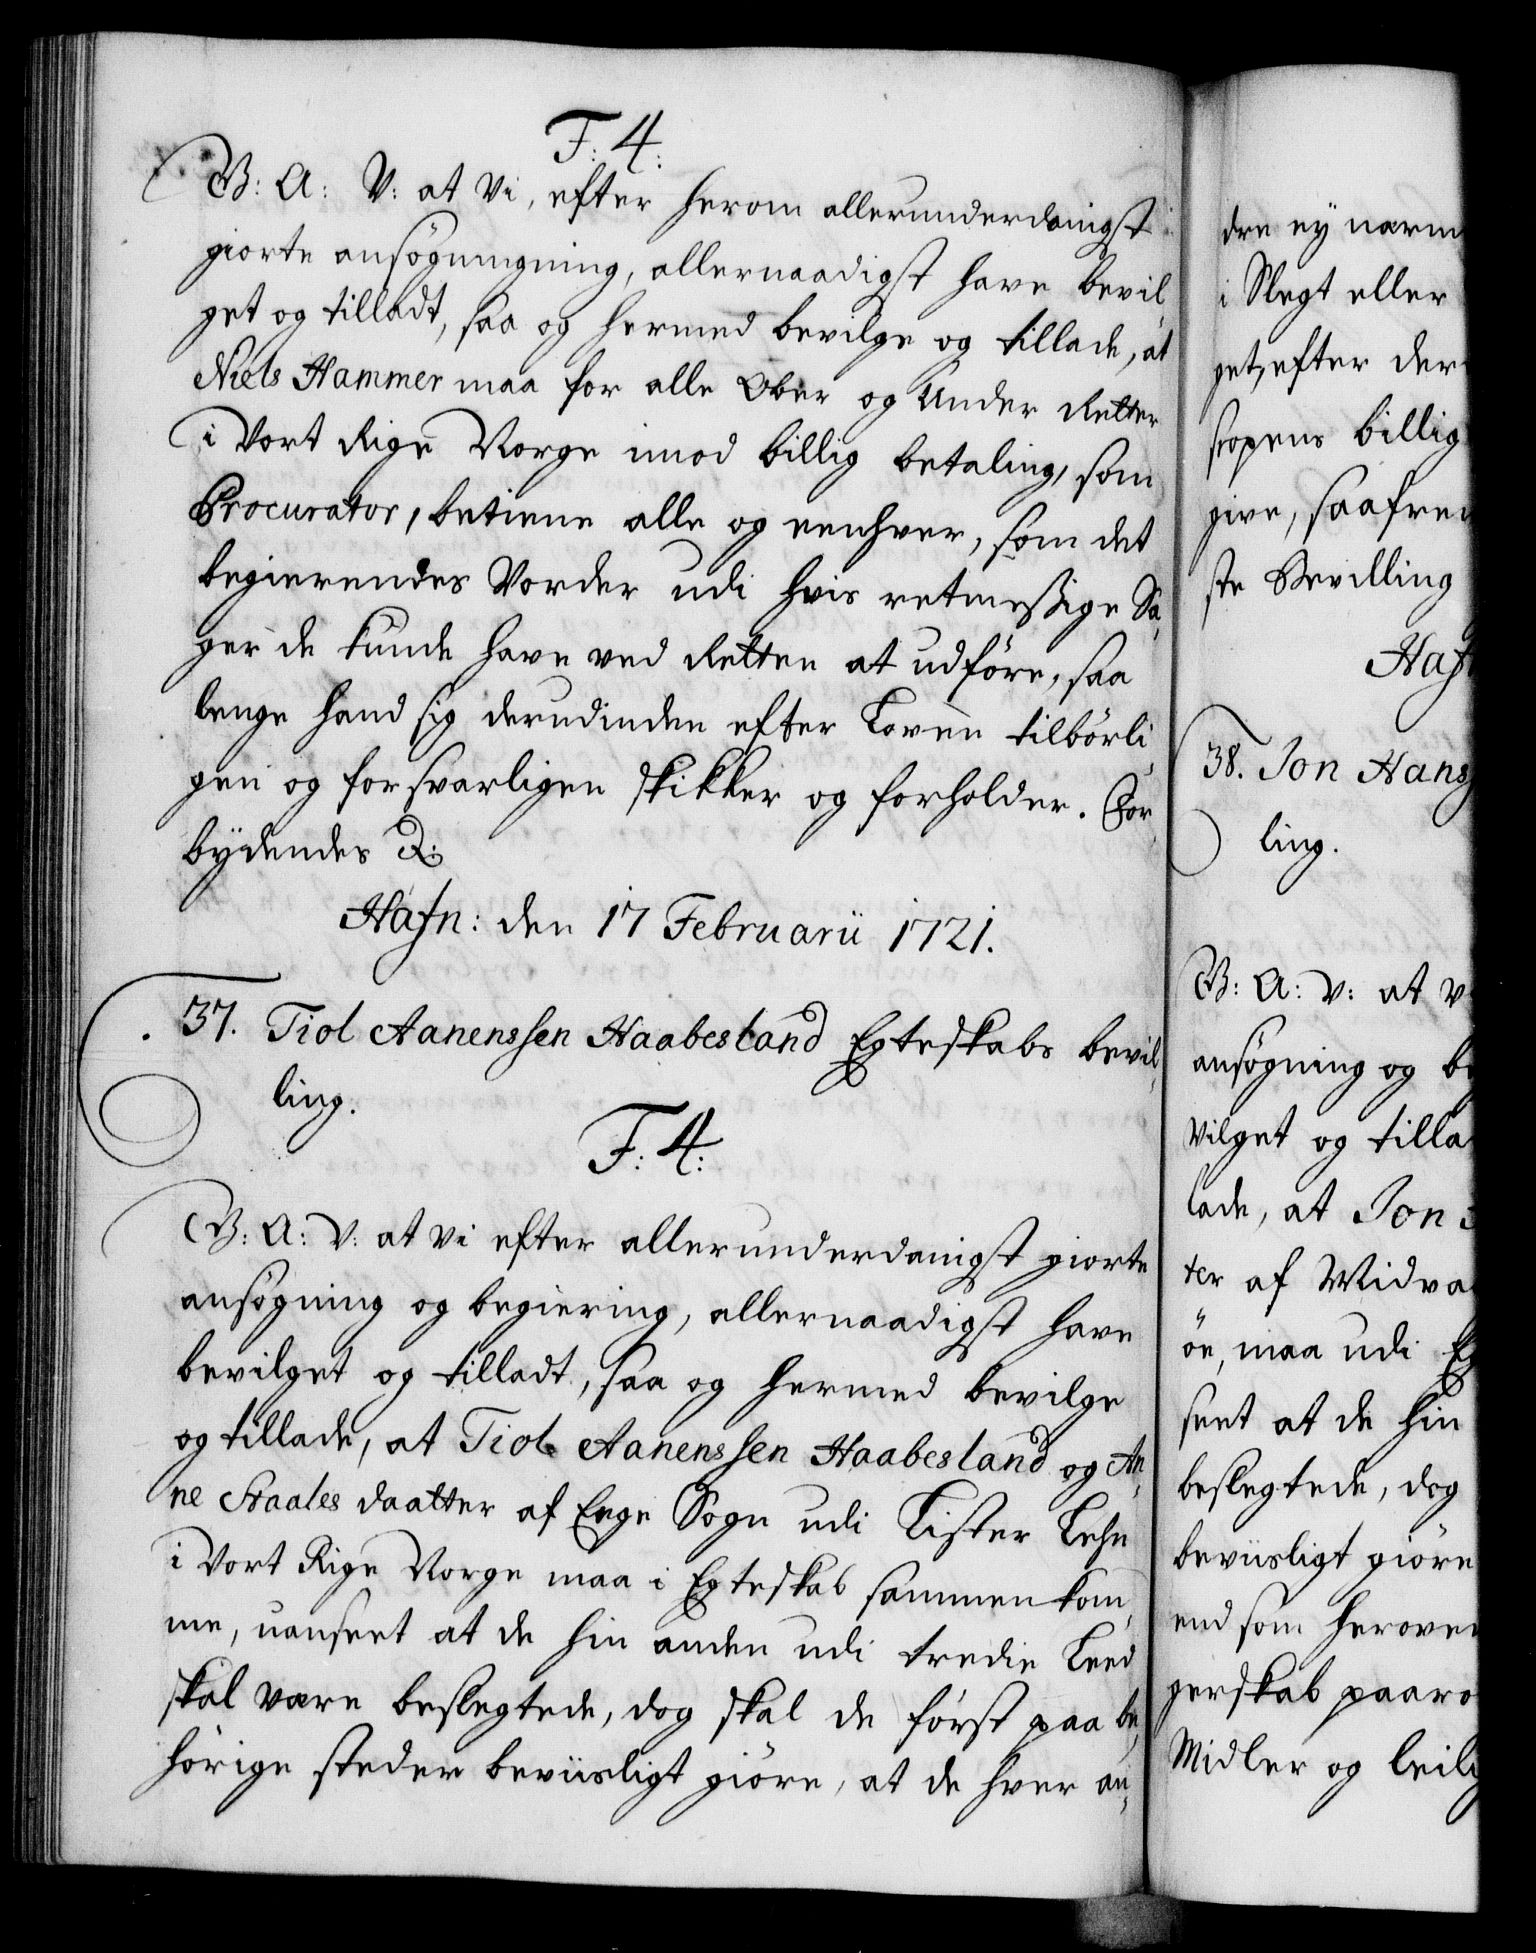 F: 4:
G: A: V: at Vi, efter herom allerunderdanigst
giorte ansøgningning, allernaadigst have bevil,
get og tilladt, saa og hermed bevilge og tillade, at
Niels Hammer maa for alle Ober og Under Retter
i Vort Rige Norge imod billig betaling, som
Procurator, betiene alle og eenhver, som det
begierendes Vorder udi hvis retmessige Sa,
ger de kunde have ved Retten at udføre, saa
lenge hand sig derudinden efter Loven tilbørli,
gen og forsvarligen skikker og forholder. For,
bydendes &:
Hafn: den 17 Februarii 1721.
37. Tiol Aanenssen Haabesland Egteskabs bevil,
ling.
F: 4:
G: A: V: at Vi efter allerunderdanigst giorte
ansøgning og begiering, allernaadigst have
bevilget og tilladt, saa og hermed bevilge
og tillade, at Tiol Aanenssen Haabesland og An,
ne Staales daatter af Enge Sogn udi Lister Lehn
i Vort Rige Norge maa i Egteskab sammenkom,
me, uanseet at de hin anden udi tredie Leed
skal være beslegtede, dog skal de først paa be,
hørige steder beviisligt giøre, at de hver an,
dre ey nærm
i Slegt eller
get, efter der
skopens billig
give, saafre
ste Bevilling
Haf
38. Jon Hans
ling.
G: A: V: at V
ansøgning og be
vilget og tilla
lade, at Jon
ter af Midva
öe, maa udi Eg
seet at de hin
beslegtede, dog
beviisligt giøre
end som heroven
gerskab paaro
Midler og leilig